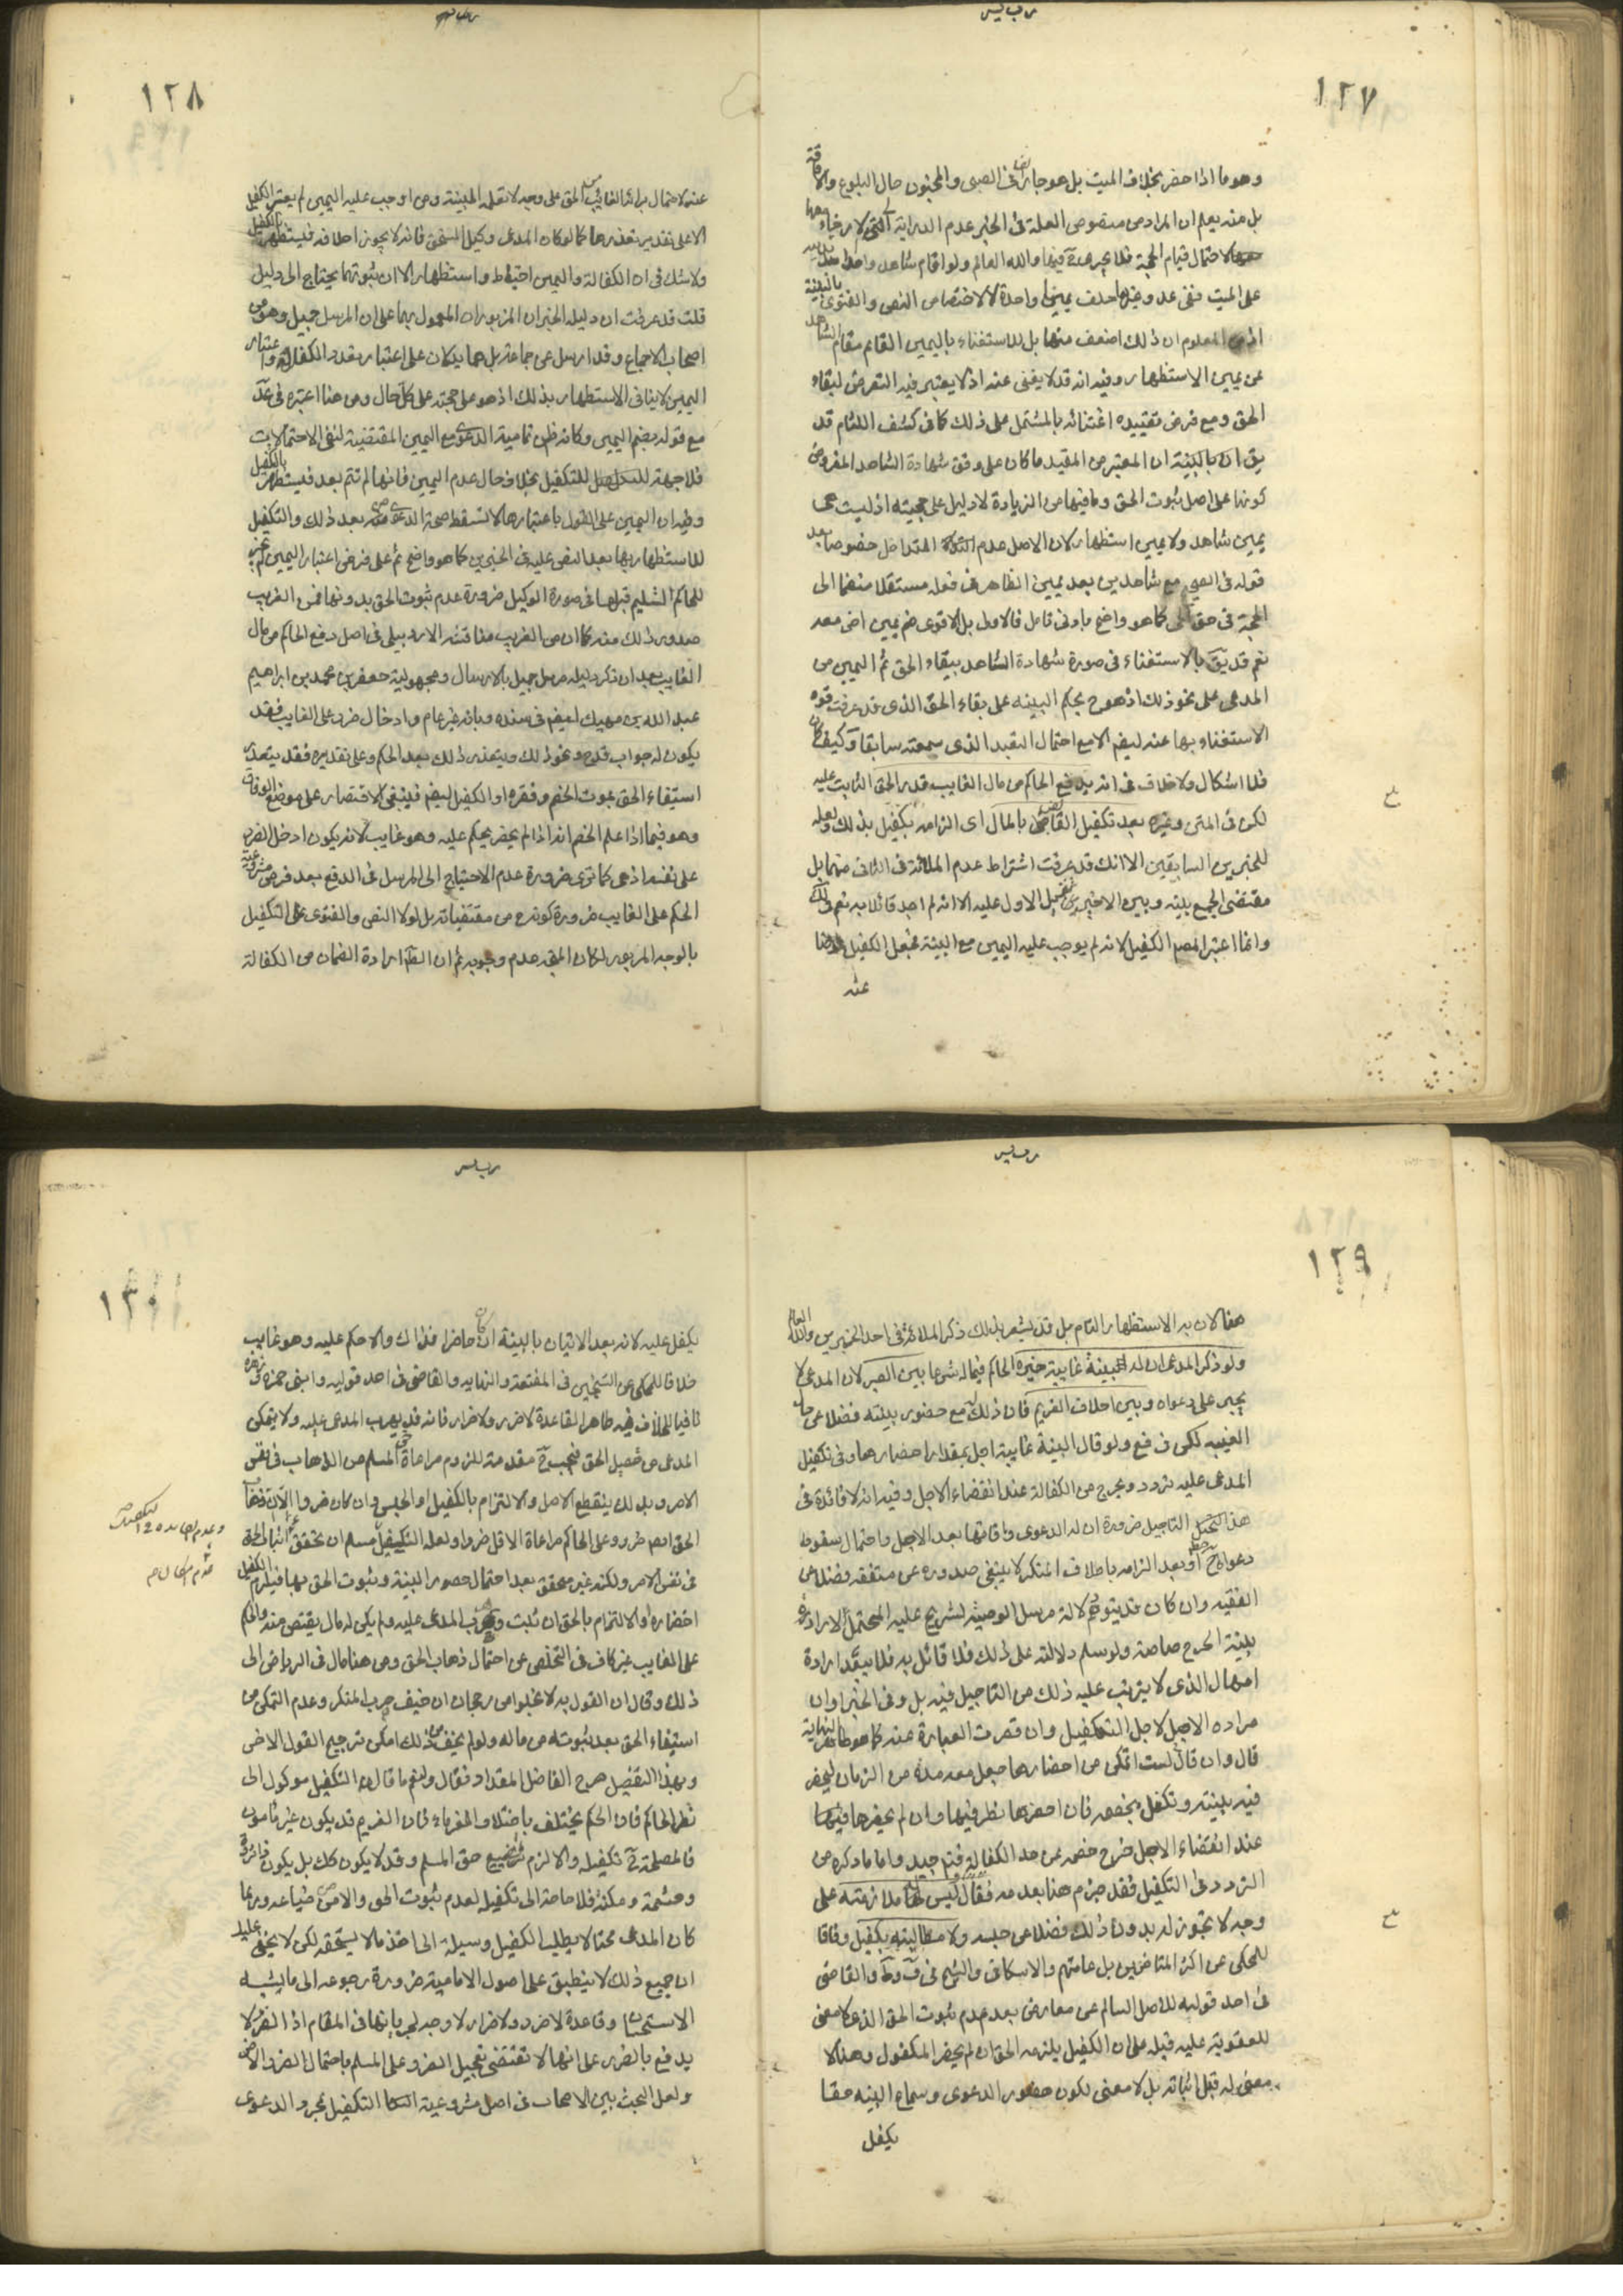 ١٢٧
وهو ما اذا حضر بخلاف الميت بل هو جار في الصبى والمجنون حال البلوغ والافاقة
بل منه يعلم ان المراد من منصوص العلة فى الخبر عدم الدراية
لاحتمال قيام الحجة فلا يجر عدة فيها والله العالم ولو اقام شاهدا واحدا
على الميت ففى عد وغيرها حلف يمينا واحدة لاختصاص النص والفتوى بالبينة
اذ من المعلوم ان ذلك اضعف منها بل للاستغناء باليمين القائم مقام الشاهد
عن يمين الاستظهار وفيه انه قد لا يغنى عنه اذ لا يعتبر فيه التعرض لبقاء
الحق ومع فرض تقييده اغتنائه بالمشتمل على ذلك كما فى كشف اللثام قد
يق ان بالبينة ان المعتبر من المقيد ما كان على وفق شهادة الشاهد المفروض
كونها على اصل ثبوت الحق وما فيها من الزيادة لا دليل على حجيته اذ ليست هى
يمين شاهد ولا يمين استظهار لان الاصل عدم التداخل خصوصا بعد
قوله فى الصحيح مع شاهدين بعد يمين الظاهر فى فعله مستقلا منضما الى
الحجة فى حق الحى كما هو واضح بادنى تامل فالاولى بل الاقوى ضم يمين اخرى معه
نعم قد يق بالاستغناء فى صورة شهادة الشاهد ببقاء الحق ثم اليمين من
المدعى على نحو ذلك اذ هو ح بحكم البينه على بقاء الحق الذى قد عرفت قوة
الاستغناء بها عنه ليضم الا مع احتمال التعبد الذى سمعته سابقا وكيف كان
فلا اشكال ولا خلاف فى انه يدفع الحاكم من مال الغايب قدر الحق الثابت عليه
لكن فى المتن وغيره بعد تكفيل القابض بالمال اى الزامه بكفيل بذلك ولعله
للخبرين السابقين الا انك قد عرفت اشتراط عدم الملائة فى الثانى منهما بل
مقتضى الجمع بينه وبين الاخير حمل الاول عليه الا انه لم اجد قائلا به نعم فى
وانما اعتبر المصم الكفيل لانه لم يوجب عليه اليمين مع البينة فجعل الكفيل عوضا
عنه
١٢٨
عنه لاحتمال براءة الغائب من الحق على وجه لا تعلمه البينة ومن اوجب عليه اليمين لم يعتبر الكفيل
الا على تقدير تعذرها كما لو كان المدعى وكيل المستحق فانه لا يجوز احلافه فيستظهر بالكفيل
ولا شك فى ان الكفالة واليمين احتياط واستظهار الا ان ثبوتهما يحتاج الى دليل
قلت قد عرفت ان دليله الخبران المزبوران المعمول بهما على ان المرسل جميل وهو من
اصحاب الاجماع وقد ارسل عن جماعة بل هما يدلان على اعتبار الكفالة واعتبار
اليمين لا ينافى الاستظهار بذلك اذ هو على حجته على كل حال ومن هنا اعتبره فى عد
مع قوله بضم اليمين وكانه ظن تمامية الدعوى مع اليمين المقتضية لنفى الاحتمالات
فلا جهة للتكفيل بخلاف حال عدم اليمين فانها لم تتم بعد فيستظهر بالكفيل
وفيه ان اليمين على القول باعتبارها لا تسقط صحة الدعوى منه بعد ذلك والتكفيل
للاستظهار بها بعد النص عليه فى الخبرين كما هو واضح ثم على فرض اعتبار اليمين لم يجز
للحاكم التسليم قبلها فى صورة الوكيل ضرورة عدم ثبوت الحق بدونها فمن الغريب
صدور ذلك منه كما ان من الغريب مناقشة الاردبيلى فى اصل دفع الحاكم من مال
الغايب بعد ان ذكر دليله مرسل جميل بالارسال ومجهولية جعفر بن محمد بن ابراهيم
عبد الله بن نهيك ليضم فى سنده وبانه غير عام وادخال ضرر على الغايب فقد
يكون له جواب قدح ونحو ذلك ويتعذر ذلك بعد الحكم وعلى تقديره فقد يتعذر
استيفاء الحق بموت الخصم وفقره او الكفيل ليضم فينبغى الاقتصار على موضع الوفاق
وهو فيما اذا علم الخصم انه اذا لم يحضر يحكم عليه وهو غايب لانه يكون ادخل الضرر
على نفسه اذ هى كما ترى ضرورة عدم الاحتياج الى المرسل فى الدفع بعد فرض مشروعية
الحكم على الغايب ضرورة كونه من مقتضياته بل لولا النص والفتوى على التكفيل
بالوجه المزبور لكان المتجه عدم وجوبه ثم ان الظ ارادة الضمان من الكفالة
١٢٩
هنا لان به الاستظهار التام بل قد يشعر بذلك ذكر الملائة فى احد الخبرين والله العالم
ولو ذكر المدعى ان له بينة غايبة خيره الحاكم فيما له شرعا بين الصبر لان المدعى لا
يجبر على دعواه وبين احلاف الغريم فان ذلك له مع حضور بينته فضلا عن حال
الغيبه لكن فى فع ولو قال البينة غايبة اجل بمقدار احضارها وفى تكفيل
المدعى عليه تردد ويخرج من الكفالة عند انقضاء الاجل وفيه انه لا فائدة فى
هذا التاجيل ضرورة ان له الدعوى واقامتها بعد الاجل واحتمال سقوط
دعواه ح او بعد الزامه باحلاف المنكر لا ينبغى صدوره عن متفقه فضلا عن
الفقيه وان كان قد يتوهم دلالة مرسل الوصية لشريح عليه المحتمل لارادة
بينة الجرح خاصة ولو سلم دلالته على ذلك فلا قائل به فلا يبعد ارادة
امهال الذى لا يترتب عليه ذلك من التاجيل فيه بل وفى الخبر او ان
مراده الاجل لاجل التكفيل وان قصرت العبارة عنه كما هو ظاهر النهاية
قال وان قال لست اتمكن من احضارها جعل معه مدة من الزمان ليحضر
فيه بينته وتكفل بخصمه فان احضرها نظر فيها وان لم يحضرها فيها
عند انقضاء الاجل خرج خصمه عن حد الكفالة فتم جيد واما ما ذكره من
التردد فى التكفيل فقد جزم هنا بعدمه فقال وليس له ملازمته على
وجه لا يجوز له بدون ذلك فضلا عن حبسه ولا مطالبته بكفيل وفاقا
للمحكى عن اكثر المتاخرين بل عامتهم والاسكافى والشيخ فى ف وط والقاضى
فى احد قوليه للاصل السالم عن معارض بعد عدم ثبوت الحق الذى لا معنى
للعقوبة عليه قبله على ان الكفيل يلزمه الحق ان لم يحضر المكفول وهنا لا
معنى له قبل اثباته بل لا معنى لكون حضور الدعوى وسماع البينه حقا
يكفل
١٣٠
يكفل عليه لانه بعد الاتيان بالبينة ان كان حاضرا فذاك والا حكم عليه وهو غايب
خلافا للمحكى عن الشيخين فى المقنعة والنهايه والقاضى فى احد قوليه وابنى حمزه وزهره
نافيا للخلاف فيه ظاهرا لقاعدة لا ضرر ولا ضرار فانه قد يهرب المدعى عليه ولا يتمكن
المدعى من تحصيل الحق فيجب ح مقدمة للزوم مراعاة حق المسلم من الذهاب فى نفس
الامر وبذلك ينقطع الاصل والالتزام بالكفيل او الحبس وان كان ضررا الا ان ذهاب
الحق اضر ضررا وعلى الحاكم مراعاة الاقل ضررا ولعله التكفيل مسلم ان تحقق اثبات الحق
فى نفس الامر ولكنه غير محقق بعد احتمال حضور البينة وثبوت الحق بها فيلزم الكفيل
احضاره او الالتزام بالحق ان ثبت وهرب المدعى عليه ولم يكن له مال يقتص منه والحكم
على الغايب غير كاف فى التخلص عن احتمال ذهاب الحق ومن هنا مال فى الرياض الى
ذلك وقال ان القول به لا يخلو من رجحان ان خيف هرب المنكر وعدم التمكن من
استيفاء الحق بعد ثبوته من ماله ولو لم يخف من ذلك امكن ترجيح القول الاخر
وبهذا التفصيل صرح الفاضل المقداد فقال ولنعم ما قال ان التكفيل موكول الى
نظر الحاكم فان الحكم يختلف باختلاف الغرماء فان الغريم قد يكون غير مامون
فالمصلحة ح تكفيله والا لزم تضييع حق المسلم وقد لا يكون كك بل يكون ذا ثروة
وحشمة ومكنة فلا حاجة الى تكفيله لعدم ثبوت الحق والامن من ضياعه وربما
كان المدعى محتالا يطلب الكفيل وسيلة الى اخذ ما لا يستحقه لكن لا يخفى عليك
ان جميع ذلك لا ينطبق على اصول الامامية ضرورة رجوعه الى ما يشبه
الاستحسان وقاعدة لا ضرر ولا ضرار لا وجه لجريانها فى المقام اذ الضرر لا
يدفع بالضرر على انها لا تقتضى تعجيل الضرر على المسلم باحتمال الضرر الاخر
ولعل البحث بين الاصحاب فى اصل مشروعية التكفيل بمجرد الدعوى